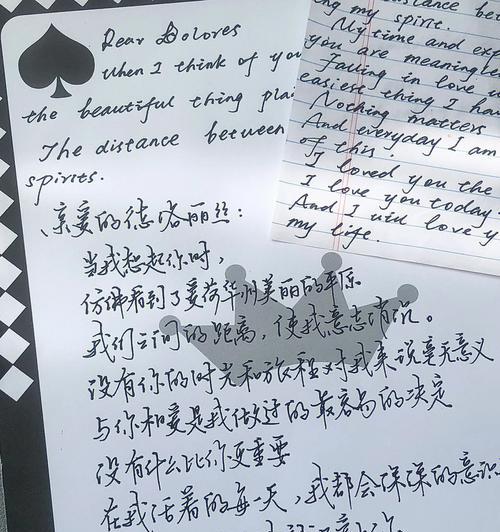 Dear Dolores
When I think of yo
the beautiful thing plai
The distance between
spirits.
亲爱的德洛丽丝：
当我想起你时，
仿佛看到了爱荷华州美丽的平原
我们之间的距离，使我意志消沉。
没有你的时光和旅程对我来说毫无意义
与你相爱是我做过的最容易的决定
没有什么比你更重要
在我活着的每一天，我都会深深的意识
ng my spirit.
My time and exp
you are meaningle
Falling in love w
easiest thing I ha
Nothing matters
And everyday I am
of this.
I loved you the
I love you today
And I will love y
my life.